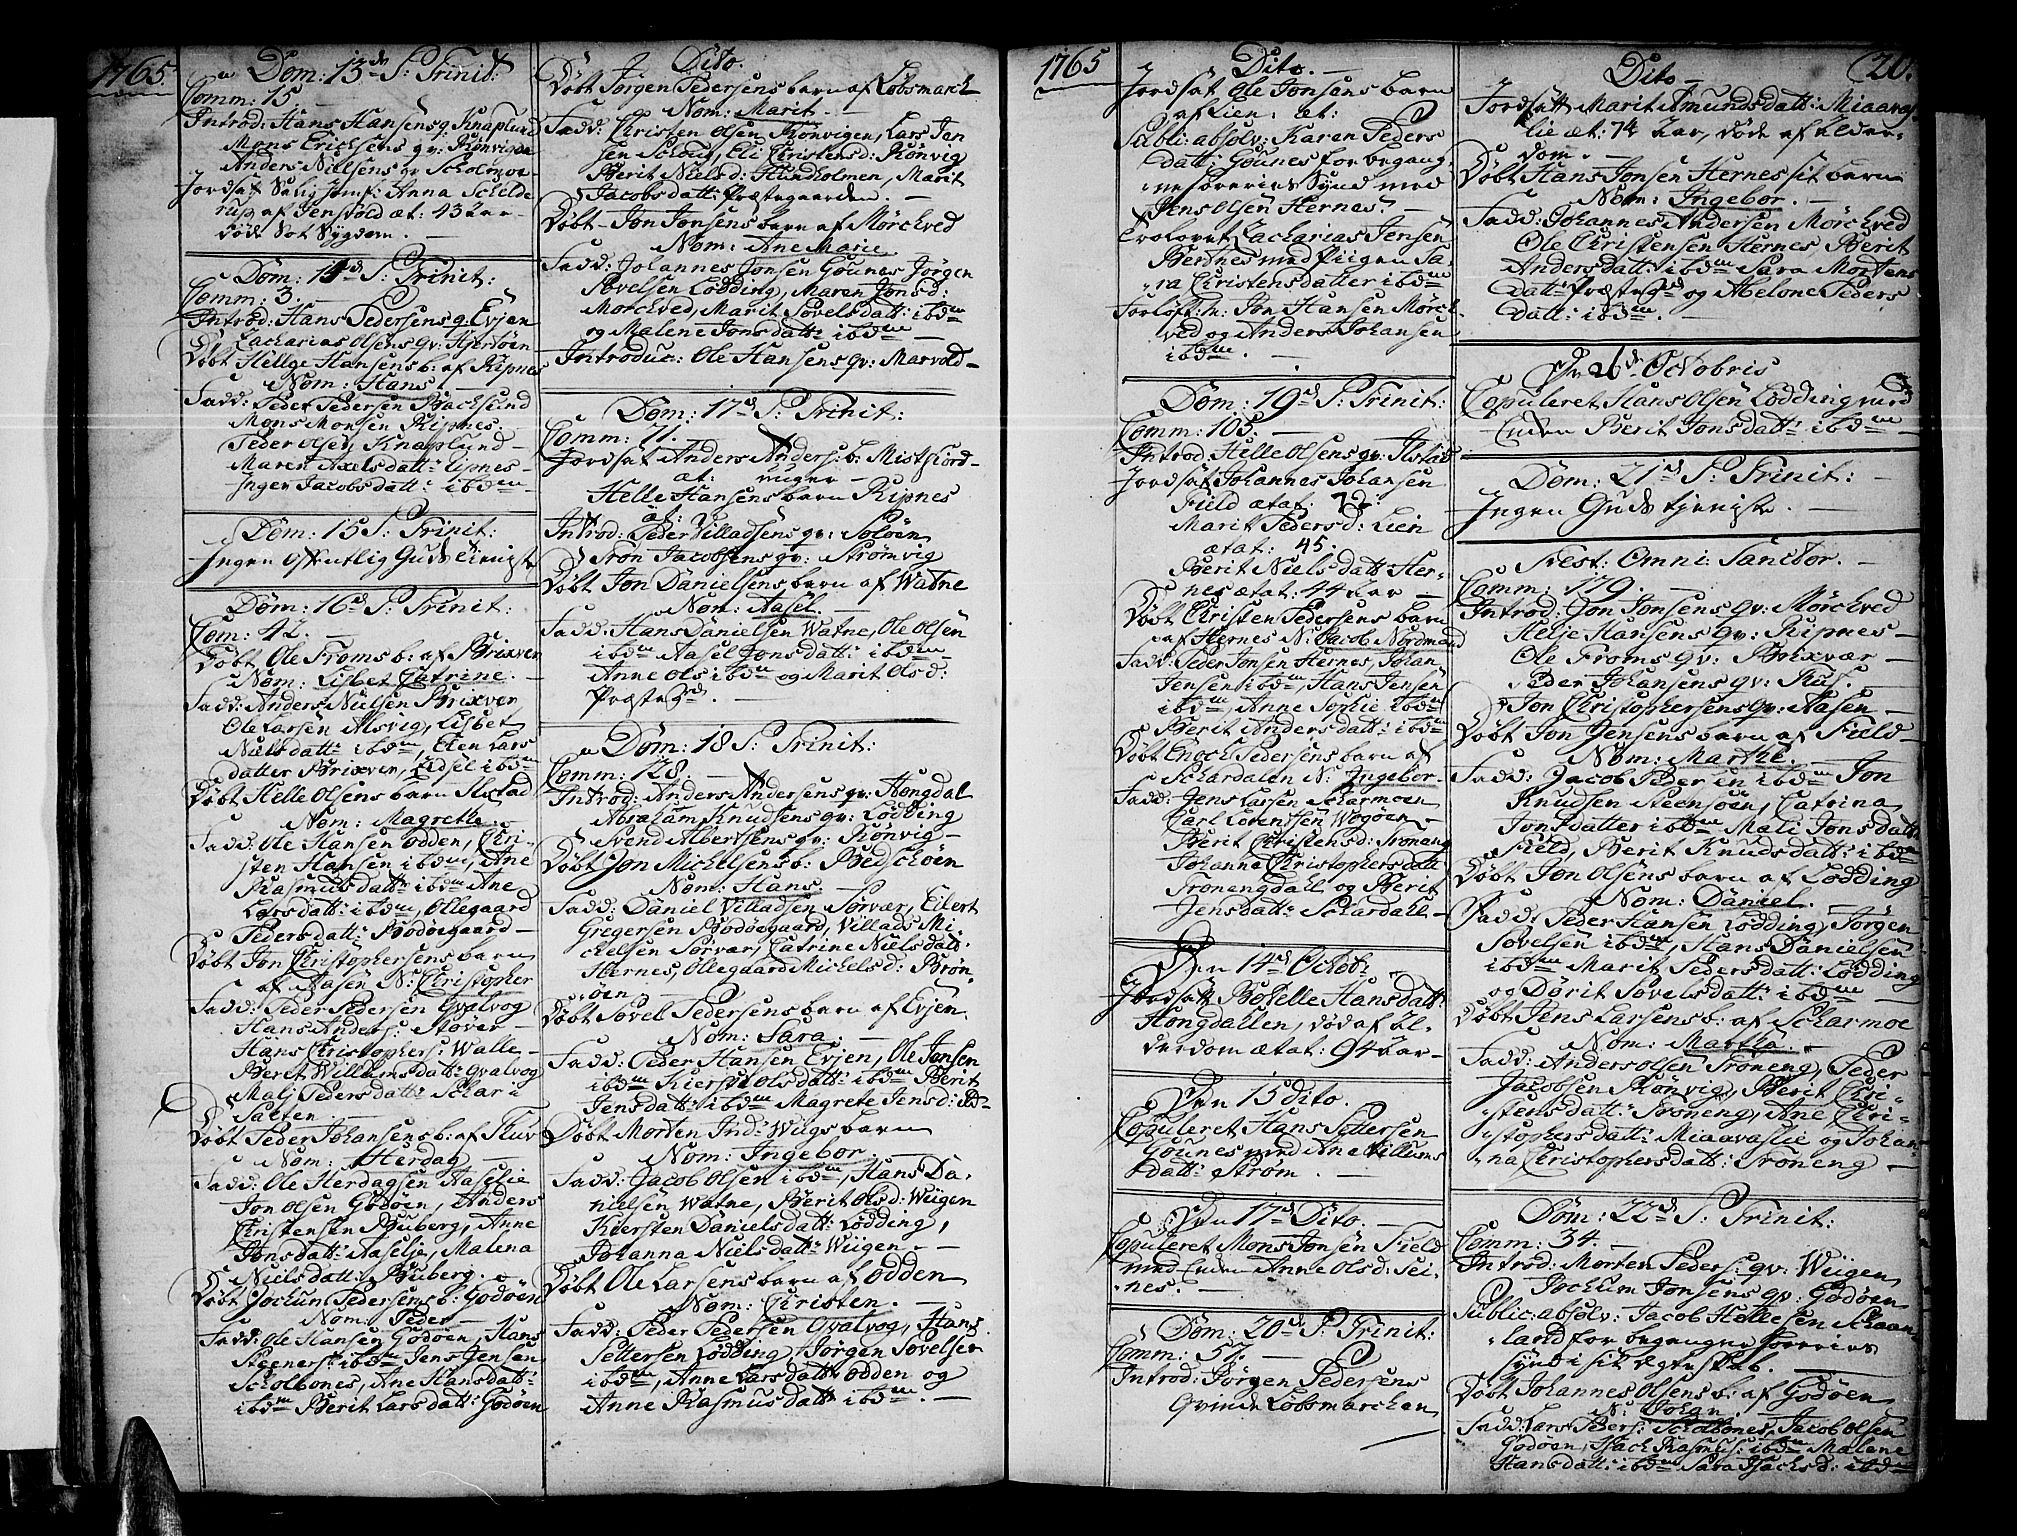 1765.
Dom: 13de S: Trinit:
Comm: 15.
Introd: Hans Hansens q: Knaplund
Mons Erichsens qv: Rønvigen
Anders Nielsens qv:
Jordsat Salig Jomf: Anna Schilde
rup af Jensvold æt: 43 Aar
døde Sot Sygdom. —
Dom: 14de S: Trinit:
Comm: 3. —
Introd: Hans Pedersens q: Evjen
Zacharias Olsens qv: Hjertøen
Døbt Hellge Hansens b: af Ripnes
Nom: Hans. —
Fadd: Peder Pedersen Bachsund
Mons Monsen Ripnes.
Peder Olsen, Knaplund —
Maren Axelsdatt: Ripnes —
Inger Jacobsdatt: ibdm —
Dom: 15 S: Trinit:
Ingen Offentlig Guds tieniste
Dom: 16de S: Trinit:
Com: 42. —
Døbt Ole Froms b: af Brixver
Nom: Lisbet Catrine. —
Fadd: Anders Nielsen Brixver
Ole Larsen Alsvig, Lisbet
Nielsdatt: ibdm, Elen Lars
datter Brixver, Sidsel ibdm
Døbt Helle Olsens barn Ilstad
Nom: Magrette. —
Fadd: Ole Hansen Odden, Chri-
sten Hansen ibdm, Ane
Rasmusdatt: ibdm Ane
Larsdatt: ibdm, Ollegaard
Pedersdatt: Bodøegaard —
Døbt Jon Christophersens barn
af Aasen N: Christopher
Fadd: Peder Pedersen Qvalvog
Hans Anders: Stover —
Hans Christophers: Walle —
Berit Willumsdatt: Qvalvog
Malj Pedersdatt: Schar i
Salten. —
Døbt Peder Johansens b: af Ruv
Nom: Herdag —
Fadd: Ole Herdagsen Aaselie
Jon Olsen Godøen, Anders
Christensen Buberg, Anne
Jonsdatt: Aaselie, Malena
Nielsdatt: Buberg. —
Døbt Jochum Pedersens b: Godøen
Nom: Peder —
Fadd: Ole Hansen Godøen, Hans
Steeners: ibdm Jens Jensen
Scholbones, Ane Hansdatt:
ibdm Berit Larsdatt: Godøen
Dito.
Døbt Jørgen Pedersens barn af Løbsmarch
Nom: Marit. —
Fadd: Christen Olsen Rønvigen, Lars Jan
sen Schoug, Eli Christensd: Rønvig
Berit Nielsd: Hundholmen, Marit
Jacobsdatt: Præstegaarden. —
Døbt Jon Jonsens barn af Mørchved
Nom: Ane Marie
Fadd: Johannes Jonsen Gounes Jørgen
Sovelsen Lødding, Maren Jonsd:
Mørchved, Marit Sovelsdatt: ibdm
og Malene Jonsdatt: ibdm —
Introduc: Ole Hansens qv: Marvold —
Dom: 17de S: Trinit:
Comm: 71. —
Jordsat Anders Anders: b: Mistfiord —
æt: uuger —
Helle Hansens barn Ripnes
æt:
Introd: Peder Villadsens qv: Soløen
Tron Jacobsens qv: Strømvig
Døbt Jon Danielsens barn af Watne
Nom: Aasel. —
Fadd: Hans Danielsen Watne, Ole Olsen
ibdm Aasel Jonsdatt: ibdm
Anne Ols ibdm og Marit Olsd:
Præsteg: —
Dom: 18 S: Trinit:
Comm: 128. —
Introd: Anders Andersens qv: Hongdal
Abraham Knudsens qv: Lødding
Svend Albertsens qv: Rønvig —
Døbt Jon Michelsens b: Bedschøen
Nom: Hans.
Fadd: Daniel Villadsen Sørvær, Eilert
Gregersen Bodøegaard, Villads Mi-
chelsen Sørvær, Catrine Nielsdatt:
Hernes, Ollegaard Michelsd: Brøn-
øen —
Døbt Sovel Pedersens barn af Evjen
Nom: Sara. —
Fadd: Peder Hansen Evjen, Ole Jonsen
ibdm Kiersti Olsdatt: ibdm Berit
Jensdatt: ibdm Magrete Jensd:
Døbt Morten Ind: Wiigs barn
Nom: Ingebor. —
Fadd: Jacob Olsen ibdm, Hans Da-
nielsen Watne, Berit Olsd: Weigen
Kiersten Danielsdatt: Lødding,
Johanna Nielsdatt: Wiigen. —
Døbt Ole Larsens barn af Odden
Nom: Christen. —
Fadd: Peder Pedersen Qvalvog, Hans
Pettersen Lødding, Jørgen Sovelsen
ibdm, Anne Larsdatt: Odden og
Anne Rasmusdatt: ibdm. —
1765
Dito. —
Jordsat Ole Jonsens barn
af Lien: æt:
Publi: absolv: Karen Peders
datt: Gounes for begang-
ne horeries Synd med
Jens Olsen Hernes. —
Trolovet Zacharias Jensen
Bertnes med Piigen Sa-
ra Christensdatter ibdm
Forløft: n: Jon Hansen Mørch
ved og Anders Johansen
ibdm. —
Dom: 19de S: Trinit:
Comm: 105. —
Introd: Helle Olsens qv: Ilstad
Jordsat Johannes Johansen
Field ætat: 72.
Marit Pedersd: Lien
ætat: 45.
Berit Nielsdatt: Her-
nes ætat: 44 aar —
Døbt Christen Pedersens barn
af Hernes N: Jacob Nordmand
Fadd: Peder Jonsen Hernes, Johan
Jensen ibdm, Hans Jensen
ibdm, Anne Sophie ibdm
Berit Andersdatt: ibdm
Døbt Enoch Pedersens barn af
Schardalen N: Ingebor —
Fadd: Jens Larsen Scharmoen
Carl Lorentsen Wogøen —
Berit Christensd: Troneng
Johanne Christophersdatt
Tronengdall og Berit
Jensdatt: Schardall —
Den 14de Octob:
Jordsat Botelle Hansdatt:
Hongdallen, død af Al-
derdom ætat: 94 aar —
Den 15 dito.
Copuleret Hans Pettersen
Gounes med Ane Villums
datt: Strøm —
Den 17de Dito. —
Copuleret Mons Jonsen Field
med Enken Anne Olsd: Sei-
nes. —
Dom: 20de S: Trinit:
Comm: 57. —
Introd: Jørgen Pedersens
Qvinde Løbsmarchen
20.
Dito —
Jordsatt Marit Amundsdatt: Miaavas
lie æt: 74 Aar, døde af Alder-
dom. —
Døbt Hans Jonsen Hernes sit barn
Nom: Ingebor. —
Fadd: Johannes Andersen Mørchved
Ole Christensen Hernes, Berit
Andersdatt: ibdm Sara Mortens
datt: Præsteg: og Abelone Peders
datt: ibdm. —
Octobris
Copuleret Hans Olsen Lødding med
Enken Berit Jonsdatt: ibdm
Dom: 21de S: Trinit:
Ingen Guds tieniste. —
Fest: Omni: Sanctor. —
Comm: 179. —
Introd: Jon Jonsens qv: Mørchved
Helje Hansens qv: Ripnes —
Ole Froms qv: Brixvær —
Peder Johansens qv: Ruf. —
Jon Christophersens qv: Aasen —
Døbt Jon Jensens barn af Field —
Nom: Marthe. —
Fadd: Jacob Peder sen ibdm Jon
Knudsen Steensøen, Catrina
Jonsdatter ibdm Mali Jonsdatt:
Field, Berit Knudsdatt: ibdm
Døbt Jon Olsens barn af Lødding
Nom: Daniel. —
Fadd: Peder Hansen Lødding, Jørgen
Sovelsen ibdm, Hans Danielsen
ibdm Marit Pedersdatt: Lødding
og Dorit Sovelsdatt: ibdm —
Døbt Jens Larsens b: af Scharmoe
Nom: Martha. —
Fadd: Anders Olsen Troneng, Peder
Jacobsen Rønvig, Berit Chri-
stensdatt: Troneng, Ane Chri-
stophersdatt: Miaavaslie og Johan-
na Christophersdatt: Troneng —
Dom: 22de S: Trinit:
Comm: 34. —
Introd: Morten Peders: qv: Weigen
Jochum Jonsens qv: Godøen
Public: absolv: Jacob Hellesen Schaan
land for begangne horeries
synd i sit Egteskab. —
Døbt Johannes Olsens b: af Godøen
N: Johan. —
Fadd: Lars Peders: Scholbones, Jacob Olsen
Godøen, Isach Rasmus: ibdm Malene
Hansdatt: ibdm Sara Isachsd: ibdm